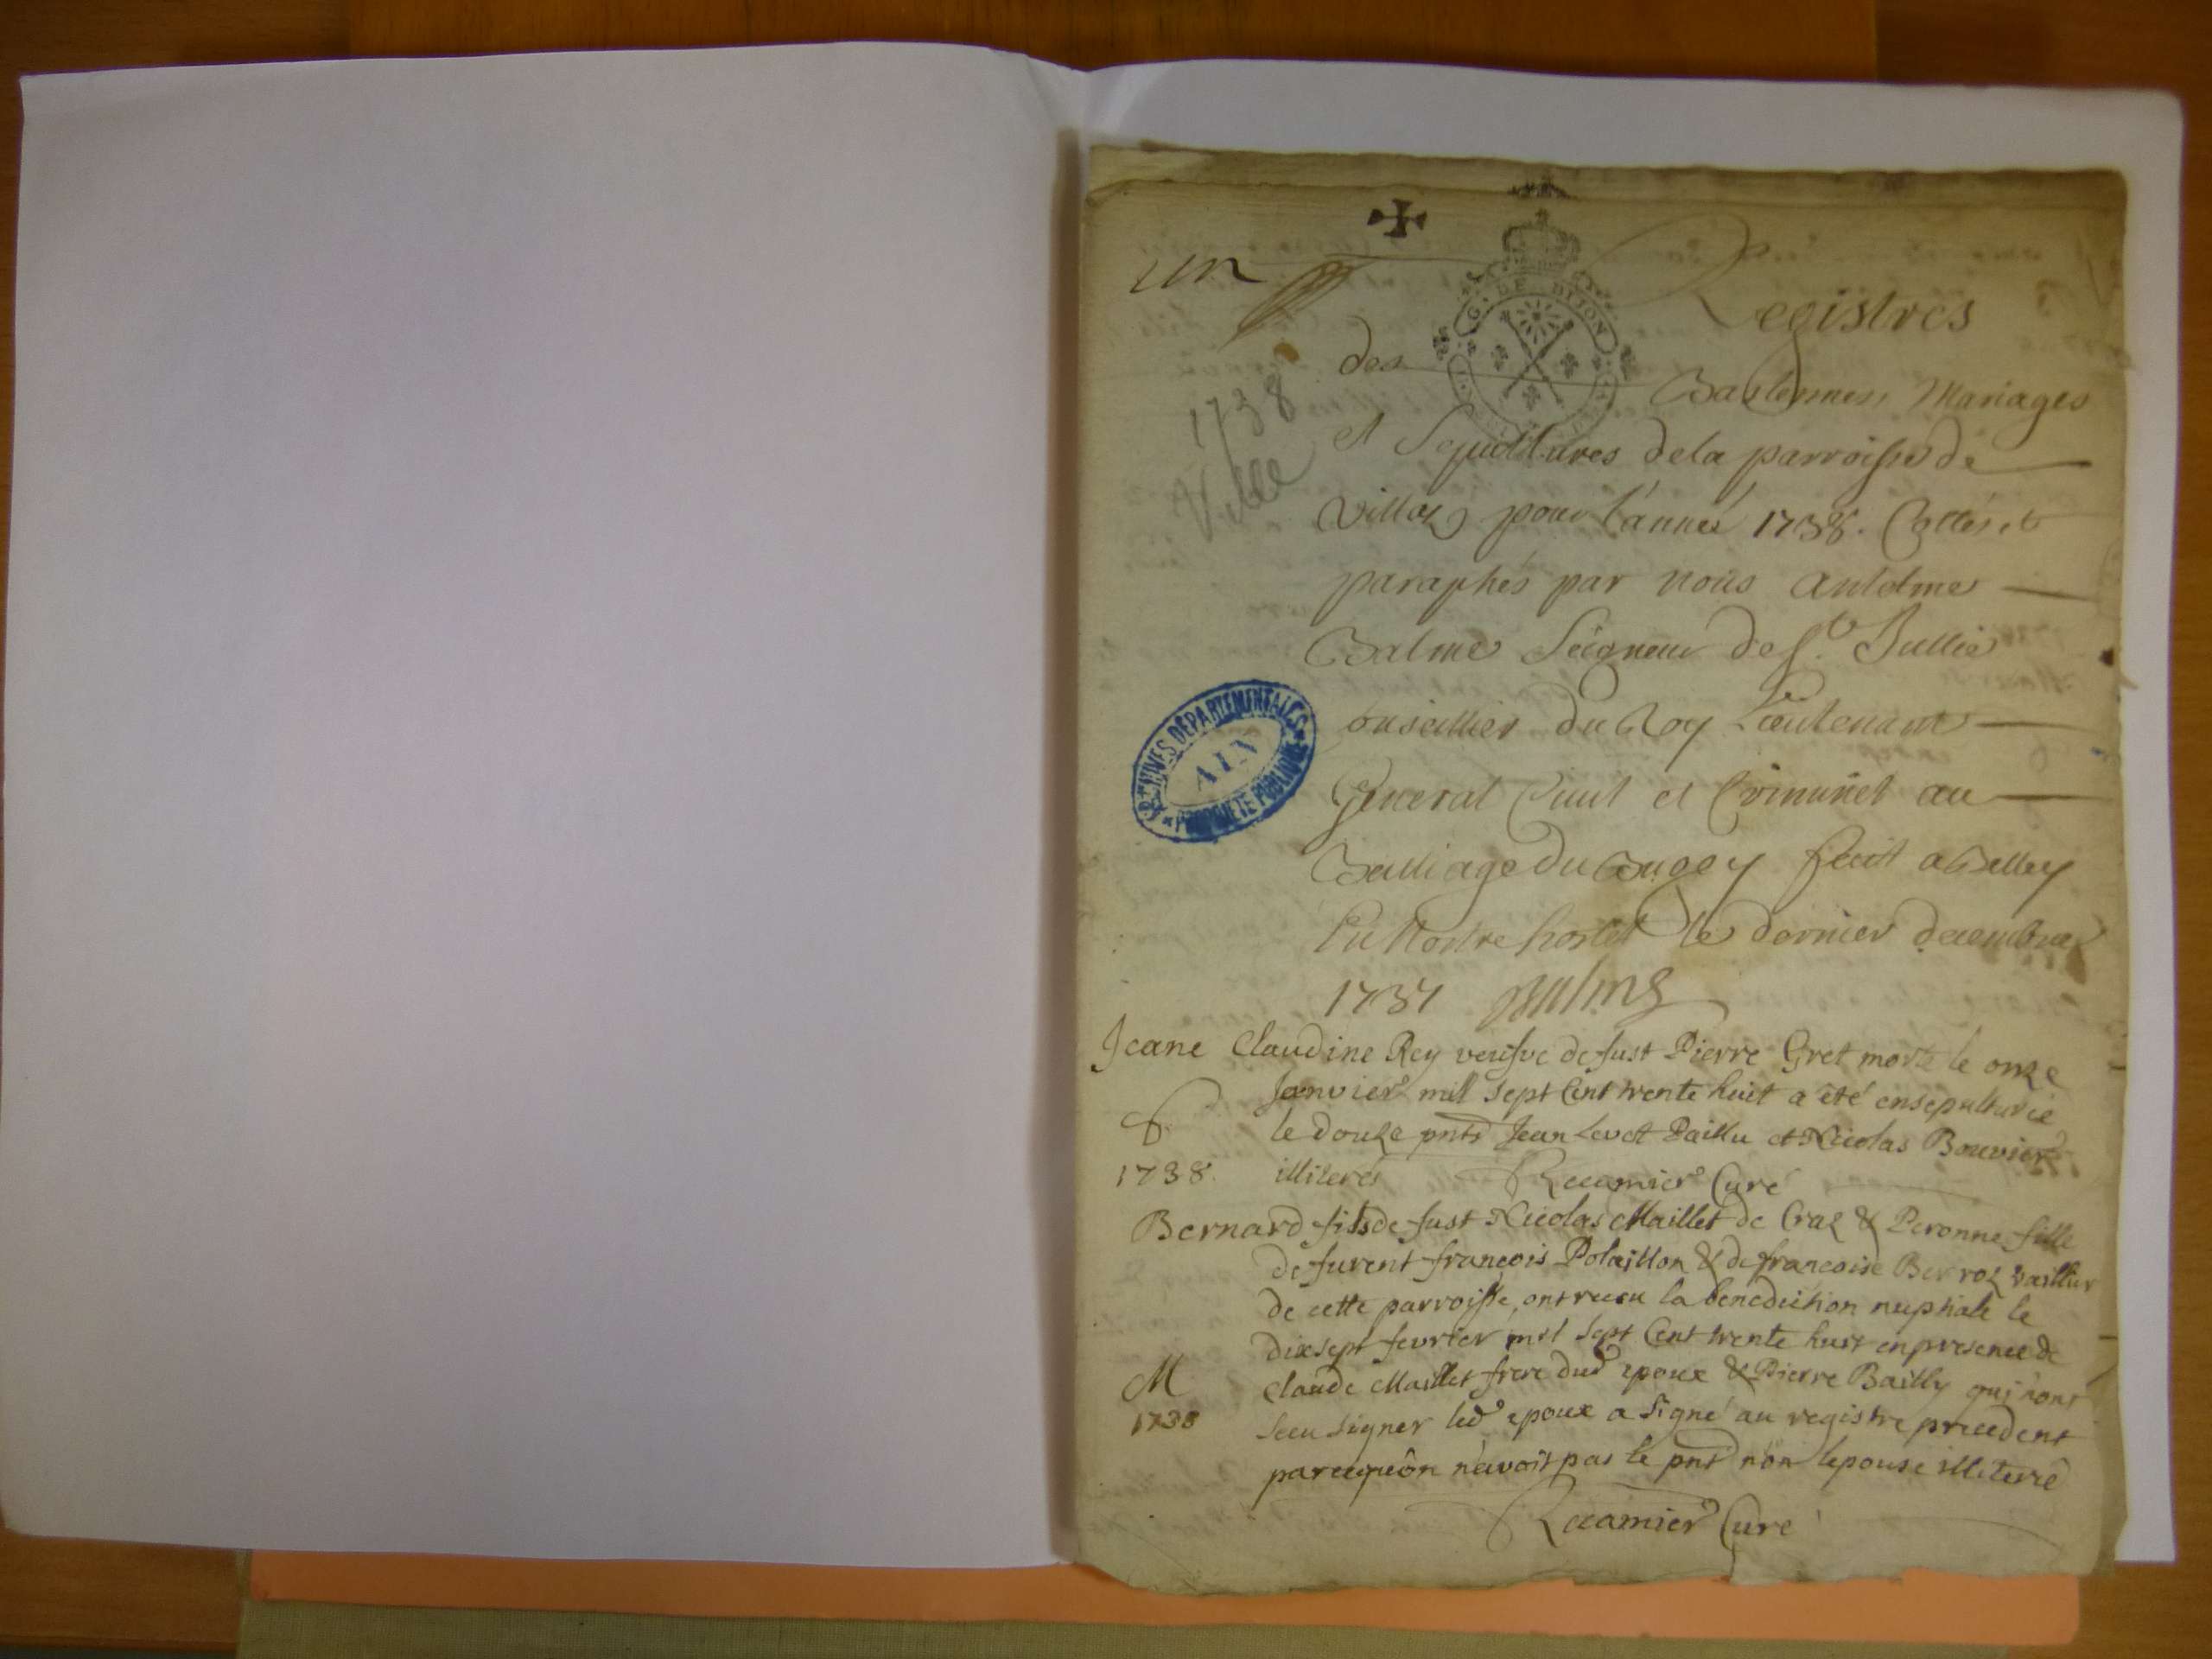 un
G. DE DIJON
Registres
des Baptesmes, Mariages
1738
Ville
et Sepultures de la parroisse de
Villaz pour l'année 1738. Cottés et
paraphés par nous Antelme
Balme Seigneur de St. Jullie
Conseillier du Roy Lieutenant
General Civil et Criminel au
Balliage du Bugey fait a Belley
En Nostre hostel le dernier decembre
1737 Balme
ARCHIVES DÉPARTEMENTALES
AIN
PROPRIÉTÉ PUBLIQUE
Jeane Claudine Rey veufve de fust Pierre Gret morte le onze
Janvier mill sept Cent trente huit a été ensepulturée
le douze pnts Jean Levet Paillu et Nicolas Bouvier
S
1738. illiterés Recamier Curé
Bernard fils de fust Nicolas Maillet de Craz & Peronne fille
de furent françois Polaillon & de francoise Berroz
de cette parroisse, ont receu la benediction nuptiale le
dixsept fevrier mil sept Cent trente huit en presence de
M
Claude Maillet frere dud epoux & Pierre Bailly qui n'ont
1738
sceu signer led epoux a signé au registre precedent
parcequ'on n'avoit pas le pnt non lepouse illiterée
Recamier Curé